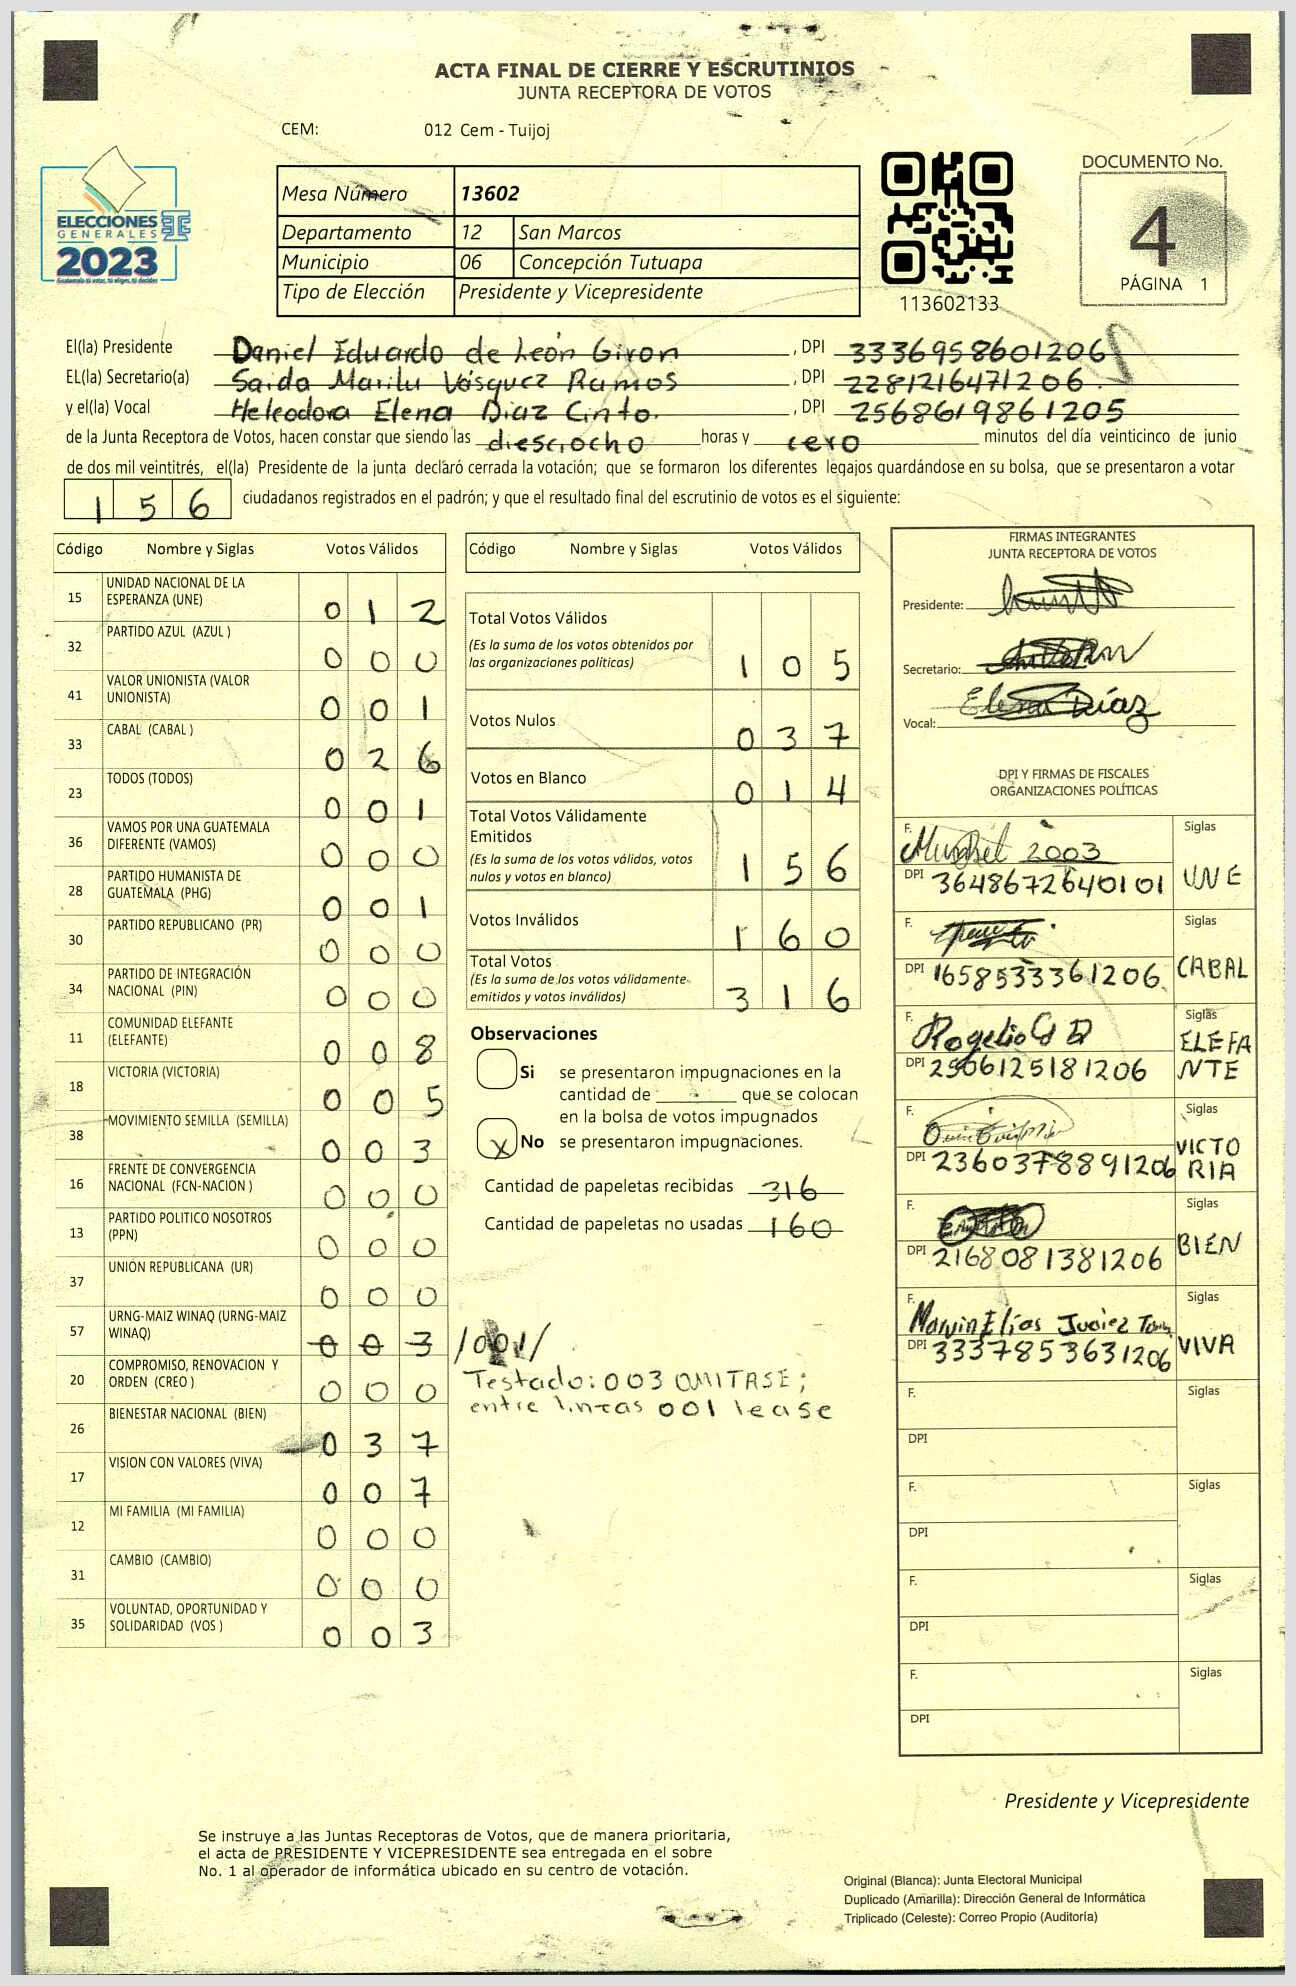 ACTA FINAL DE CIERRE Y ESCRUTINIOS
JUNTA RECEPTORA DE VOTOS
CEM: 012 Cem - Tuijoj
ELECCIONES
GENERALES
2023
Mesa Número 13602
Departamento 12 San Marcos
Municipio 06 Concepción Tutuapa
Tipo de Elección Presidente y Vicepresidente
113602133
DOCUMENTO No.
4
PÁGINA 1
El(la) Presidente Daniel Eduardo de León Giron, DPI 3336958601206
EL(la) Secretario(a) Saida Marilu Vásquez Ramos, DPI 2281216471206
y el(la) Vocal Heleodora Elena Diaz Cinto., DPI 2568619861205
de la Junta Receptora de Votos, hacen constar que siendo las diesciocho horas y cero minutos del día veinticinco de junio
de dos mil veintitrés, el(la) Presidente de la junta declaró cerrada la votación; que se formaron los diferentes legajos quardándose en su bolsa, que se presentaron a votar
156 ciudadanos registrados en el padrón; y que el resultado final del escrutinio de votos es el siguiente:
Código Nombre y Siglas Votos Válidos
15 UNIDAD NACIONAL DE LA ESPERANZA (UNE) 0 1 2
32 PARTIDO AZUL (AZUL ) 0 0 0
41 VALOR UNIONISTA (VALOR UNIONISTA) 0 0 1
33 CABAL (CABAL ) 0 2 6
23 TODOS (TODOS) 0 0 1
36 VAMOS POR UNA GUATEMALA DIFERENTE (VAMOS) 0 0 0
28 PARTIDO HUMANISTA DE GUATEMALA (PHG) 0 0 1
30 PARTIDO REPUBLICANO (PR) 0 0 0
34 PARTIDO DE INTEGRACIÓN NACIONAL (PIN) 0 0 0
11 COMUNIDAD ELEFANTE (ELEFANTE) 0 0 8
18 VICTORIA (VICTORIA) 0 0 5
38 MOVIMIENTO SEMILLA (SEMILLA) 0 0 3
16 FRENTE DE CONVERGENCIA NACIONAL (FCN-NACION ) 0 0 0
13 PARTIDO POLITICO NOSOTROS (PPN) 0 0 0
37 UNIÓN REPUBLICANA (UR) 0 0 0
57 URNG-MAIZ WINAQ (URNG-MAIZ WINAQ) 0 0 3 /001/
20 COMPROMISO, RENOVACION Y ORDEN (CREO ) 0 0 0
26 BIENESTAR NACIONAL (BIEN) 0 3 7
17 VISION CON VALORES (VIVA) 0 0 7
12 MI FAMILIA (MI FAMILIA) 0 0 0
31 CAMBIO (CAMBIO) 0 0 0
35 VOLUNTAD, OPORTUNIDAD Y SOLIDARIDAD (VOS ) 0 0 3
Código Nombre y Siglas Votos Válidos
Total Votos Válidos 1 0 5
(Es la suma de los votos obtenidos por
las organizaciones políticas)
Votos Nulos 0 3 7
Votos en Blanco 0 1 4
Total Votos Válidamente
Emitidos 1 5 6
(Es la suma de los votos válidos, votos
nulos y votos en blanco)
Votos Inválidos 1 6 0
Total Votos 3 1 6
(Es la suma de los votos válidamente
emitidos y votos inválidos)
Observaciones
Si se presentaron impugnaciones en la
cantidad de ________ que se colocan
en la bolsa de votos impugnados
X No se presentaron impugnaciones.
Cantidad de papeletas recibidas 316
Cantidad de papeletas no usadas 160
Testado: 003 OMITASE;
entre lineas 001 lease
FIRMAS INTEGRANTES
JUNTA RECEPTORA DE VOTOS
Presidente:
Secretario:
Vocal: Elena Díaz
DPI Y FIRMAS DE FISCALES
ORGANIZACIONES POLÍTICAS
F. 2003 Siglas
DPI 3648672640101 UNE
F. Siglas
DPI 1658533361206 CABAL
F. Rogelio Siglas
DPI 2506125181206 ELEFANTE
F. Siglas
DPI 2360378891206 VICTORIA
F. Siglas
DPI 2168081381206 BIEN
F. Marvin Elías Siglas
DPI 3337853631206 VIVA
F. Siglas
DPI
F. Siglas
DPI
F. Siglas
DPI
F. Siglas
DPI
Presidente y Vicepresidente
Se instruye a las Juntas Receptoras de Votos, que de manera prioritaria,
el acta de PRESIDENTE Y VICEPRESIDENTE sea entregada en el sobre
No. 1 al operador de informática ubicado en su centro de votación.
Original (Blanca): Junta Electoral Municipal
Duplicado (Amarilla): Dirección General de Informática
Triplicado (Celeste): Correo Propio (Auditoría)